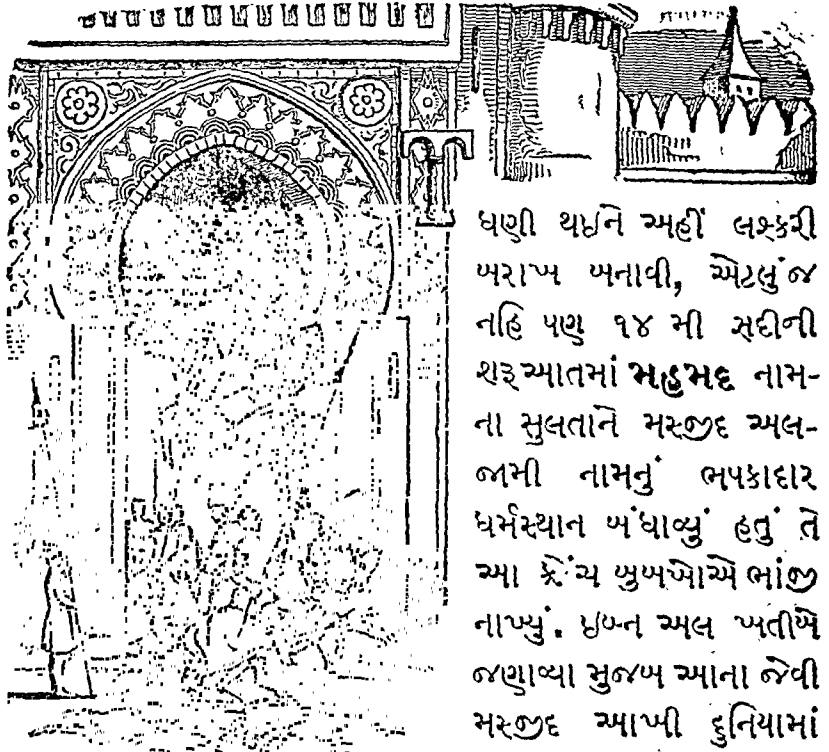 ધણી થઇને અહીં લશ્કરી
બરાખ બનાવી, એટલું જ
નહિ પણ ૧૪ મી સદીની
શરૂઆતમાં મહમદ નામ-
ના સુલતાને મસ્જીદ અલ-
જામી નામનું ભપકાદાર
ધર્મસ્થાન બંધાવ્યું હતું તે
આ ફ્રેંચ બુબખોએ ભાંજી
નાખ્યું. ઇબ્ન અલ ખતીબે
જણાવ્યા મુજબ આના જેવી
મસ્જીદ આખી દુનિયામાં